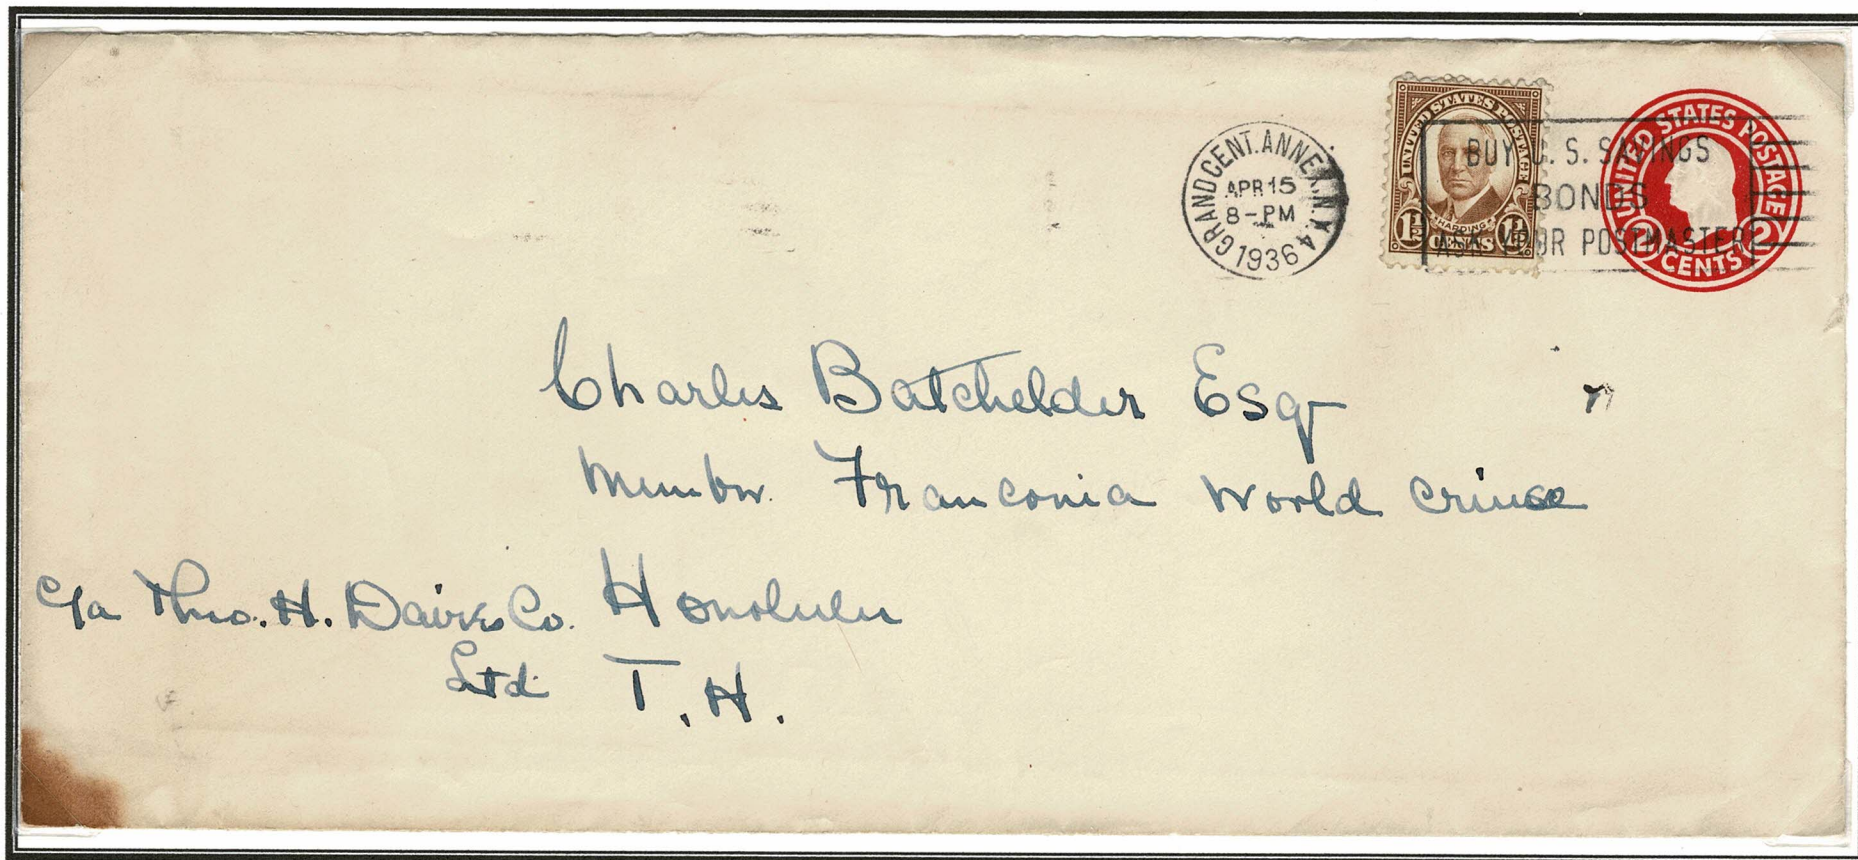 GRAND CENT. ANNEX. N.Y. 4
APR 15
8-PM
1936
UNITED STATES POSTAGE
HARDING
1½ CENTS 1½
BUY U. S. SAVINGS
BONDS
ASK YOUR POSTMASTER
UNITED STATES POSTAGE
2 CENTS 2
Charles Batchelder Esq
Member Franconia World Cruise
c/a Theo. H. Davies Co. Honolulu
Ltd T.H.